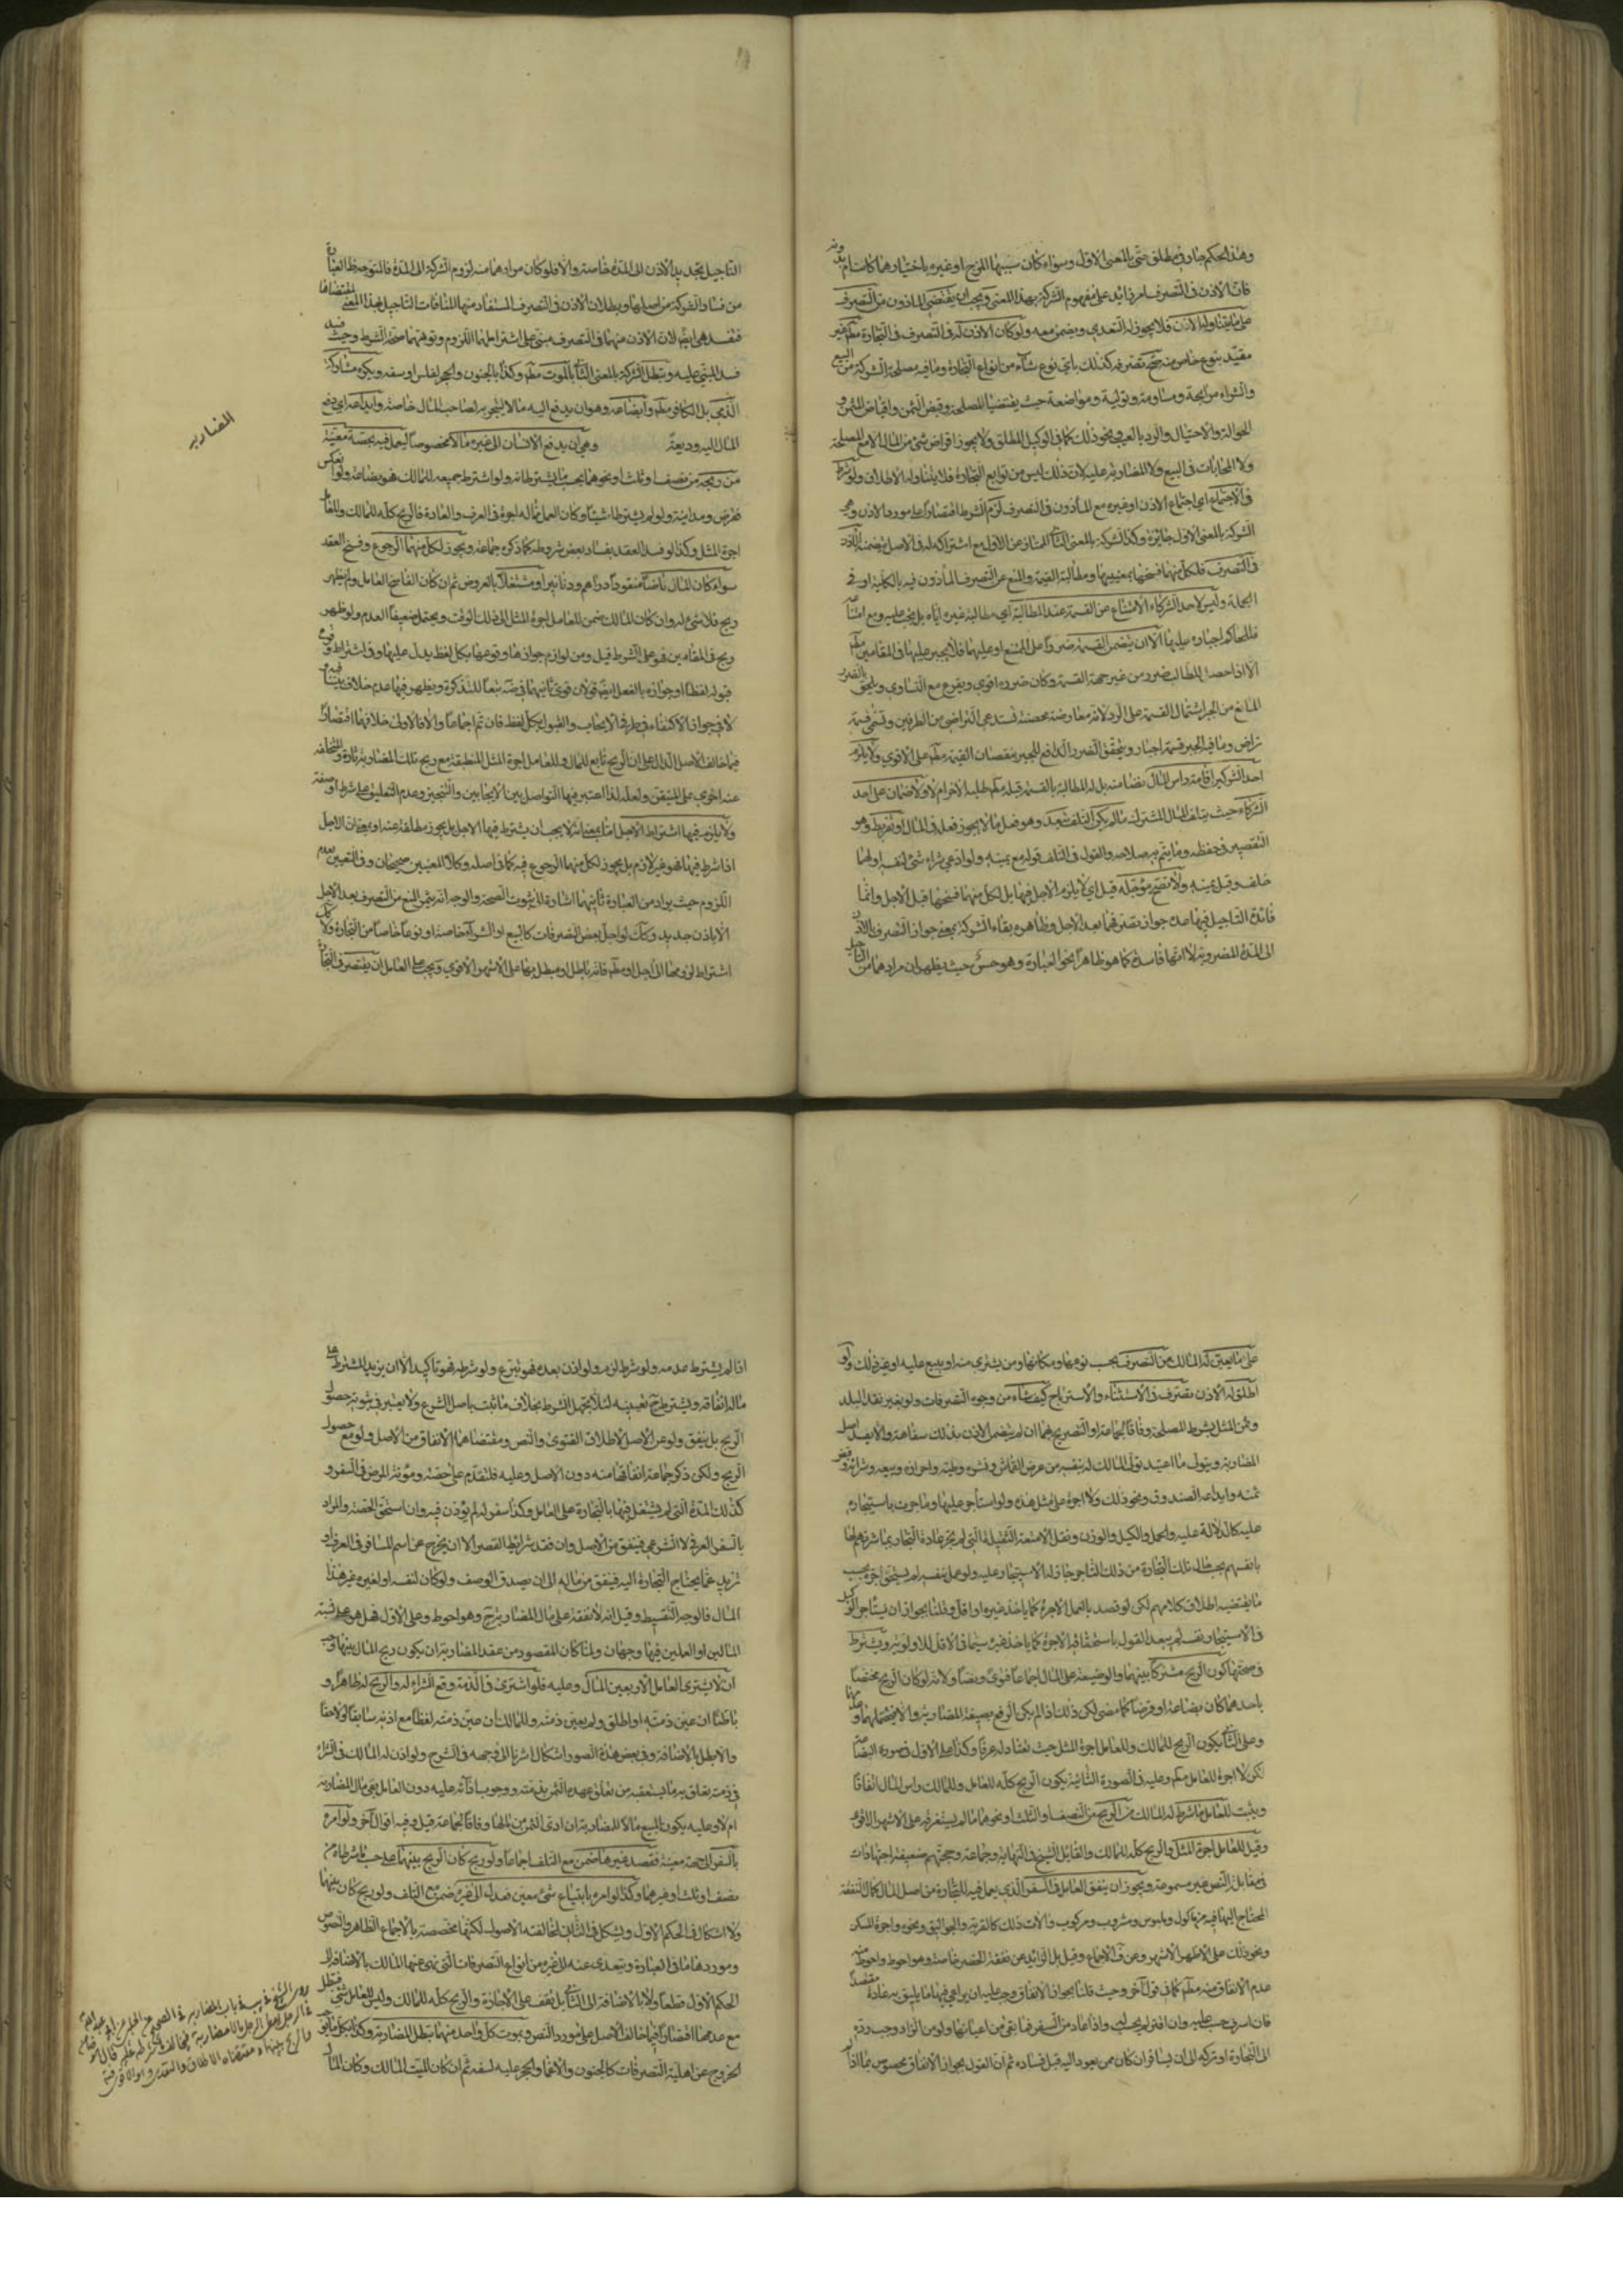 وهذا الحكم جار في مطلق حتى بالمعنى الاول وسواء كان سببها المزج او غيره باختيارهما كانت ام بدونه
فان الاذن في التصرف امر زائد على مفهوم الشركة بهذا المعنى ويجب ان يقتصر الماذون من التصرف
على ما يتناوله الاذن فلا يجوز له التعدي ويضمن معه ولو كان الاذن له في التصرف في التجارة مطم غير
مقيد بنوع خاص منه صح تصرفه كذلك باي نوع شاء من انواع التجارة وما فيه مصلحة الشركة من البيع
والشراء مرابحة ومساومة وتولية ومواضعة حيث يقتضيها المصلحة وقبض الثمن واقباض المثمن و
الحوالة والاحتيال والرد بالعيب ونحو ذلك كما في الوكيل المطلق ولا يجوز اقراض شئ من المال الا مع المصلحة
ولا المحابات في البيع ولا المضاربة عليه لان ذلك ليس من توابع التجارة فلا يتناوله الاطلاق ولو شرط
في الاجتماع اي اجتماع الاذن او غيره مع الماذون في التصرف لزم الشرط اقتصارا على مورد الاذن وهي
الشركة بالمعنى الاول جائزة وكذا الشركة بالمعنى الثاني الممتاز عن الاول مع اشتراكه له في الاصل بتضمنه الاذن
في التصرف فلكل منهما فسخها بمعنييها ومطالبة القسمة والمنع عن التصرف الماذون فيه بالكلية او في
الجملة وليس لاحد الشركاء الامتناع من القسمة عند المطالبة اي مطالبة غيره اياه بل يجب عليه ومع امتناعه
فللحاكم اجباره عليها الا ان يتضمن القسمة ضررا على الممتنع او عليهما فلا يجبر عليها في المقامين مطم
الا اذا حصل للطالب ضرر من غير جهة القسمة وكان ضرره اقوى ويقرع مع التساوي ويلحق بالضرر
المانع من الجبر اشتمال القسمة على الرد لانه معاوضة محضة فتستدعي التراضي من الطرفين وتسمى قسمة
تراض وما فيه الجبر قسمة اجبار ويتحقق الضرر الدافع للجبر بنقصان القيمة مطم على الاقوى ولا يلزم
احد الشريكين اقامة راس المال نضا منه بل له المطالبة بالقسمة قبله مطم طلبه الاخر ام لا ولا ضمان على احد
الشركاء حيث يتلف المال المشترك ما لم يكن التلف بتعد وهو فعل ما لا يجوز فعله في المال او تفريط وهو
التقصير في حفظه وما يتم به صلاحه والقول في التلف قوله مع يمينه ولو ادعى شراء شئ لنفسه او لهما
حلف وقبل يمينه ولا تصح مؤجلة قيل اي لا يلزم الاجل فيها بل لكل منهما فسخها قبل الاجل وانما
فائدة التاجيل فيها عدم جواز تصرفهما بعد الاجل وظاهره بقاء الشركة بمعنى جواز التصرف بالاذن
الى المدة المضروبة لا انها فاسدة كما هو ظاهر نحو العبارة وهو حسن حيث يظهر ان مرادهما من التاجيل
التاجيل تحديد الاذن الى المدة خاصة والا فلو كان مرادهما منه لزوم الشركة الى المدة فالتوجه ظاهر العبارة
من فساد الشركة من اصلها وبطلان الاذن في التصرف المستفاد منها لمنافات التاجيل بهذا المعنى لمقتضاها
فتفسد هي ايضا لان الاذن منهما في التصرف مبني على اشتراطهما اللزوم وتوهمهما صحة الشرط وحيث فسد
فسد المبني عليه وتبطل الشركة بالمعنى الثاني بالموت مطم وكذا بالجنون والحجر لفلس او سفه ويكره مشاركة
الذمي بل الكافر مطم وابضاعه وهو ان يدفع اليه مالا ليتجر به لصاحب المال خاصة وايداعه اي دفع
المال اليه وديعة وهي ان يدفع الانسان الى غيره مالا مخصوصا ليعمل فيه بحصة معينة
المضاربه
من ربحه من نصف او ثلث او نحوهما بحسب ما يشترطانه ولو اشترط جميعه للمالك فهو بضاعة ولو انعكس
فقرض ومداينة ولو لم يشترطا شيئا وكان العمل مما له اجرة في العرف والعادة فالربح كله للمالك وللعامل
اجرة المثل وكذا لو فسد العقد بفساد بعض شروطه كما ذكره جماعة ويجوز لكل منهما الرجوع وفسخ العقد
سواء كان المال ناضا منقودا دراهم ودنانير او مشتغلا بالعروض ثم ان كان الفاسخ العامل ولم يظهر
ربح فلا شئ له وان كان المالك ضمن للعامل اجرة المثل الى ذلك الوقت ويحتمل ضعيفا العدم ولو ظهر
ربح في المقامين فهو على الشرط قيل ومن لوازم جوازها وقوعها بكل لفظ يدل عليها وفي اشتراط وقوع
قبوله لفظا او جوازه بالفعل ايضا قولان قوى ثانيهما في ضه تبعا للتذكرة ويظهر فيها عدم خلاف بيننا فيه
لا في جواز الاكتفاء في طرفي الايجاب والقبول بكل لفظ فان تم اجماعا والا فالاولى خلافهما اقتصارا
فيما خالف الاصل الدال على ان الربح تابع للمال وللعامل اجرة المثل المنطبقة مع ربح تلك المضاربة تارة والمتخلفة
عنه اخرى على المتيقن ولعله لذا اعتبر فيها التواصل بين الايجابين والتنجيز وعدم التعليق على شرط او صفة
ولا يلزم فيها اشتراط الاجل اما بمعنى انه لا يجب ان يشترط فيها الاجل بل يجوز مطلقة عنه او بمعنى ان الاجل
اذا شرط فيها فهو غير لازم بل يجوز لكل منهما الرجوع فيه كما في اصله وكلا المعنيين صحيحان وفي التعبير بعدم
اللزوم حيث يراد من العبارة ثانيهما اشارة الى ثبوت الصحة والوجه انه يثمر المنع من التصرف بعد الاجل
الا باذن جديد وكذلك لو اجل بعض التصرفات كالبيع او الشراء خاصة او نوعا خاصا من التجارة ولا كك
اشتراط لزومها الى اجل او مطم فانه باطل او مبطل معا على الاشهر الاقوى ويجب على العامل ان يقتصر في التجارة
على ما يعين له المالك من التصرف بحسب نوعها ومكانها ومن يشتري منه او يبيع عليه او غير ذلك ولو
اطلق له الاذن تصرف في الاستنماء والاسترباح كيف شاء من وجوه التصرفات ولو بغير نقد البلد
وثمن المثل بشرط المصلحة وفاقا لجماعة او التصريح بهما ان لم يتضمن الاذن بذلك سفاهة والا بفسد اصل
المضاربة ويتولى ما اعتيد تولي المالك له بنفسه من عرض القماش ونشره وطيه واحرازه وبيعه وشرائه وقبض
ثمنه وايداعه الصندوق ونحو ذلك ولا اجرة على مثل هذه ولو استاجر عليها وما جرت باستيجاره
عليه كالدلالة عليه والحمل والكيل والوزن ونقل الامتعة الثقيلة التي لم تجر عادة التجار بمباشرتهم لها
بانفسهم بحسب تلك التجارة من ذلك التاجر جاز له الاستيجار عليه ولو عمل بنفسه لم يستحق اجرة بحسب
ما يقتضيه اطلاق كلامهم لكن لو قصد بالعمل الاجرة كما ياخذ غيره او اقل وقلنا بجواز ان يستاجر الوكيل
في الاستيجار نفسه لم يبعد القول باستحقاقه الاجرة كما ياخذ غيره سيما في الاقل للاولوية ويشترط
في صحتها كون الربح مشتركا بينهما والوضيعة على المال اجماعا فتوى ونصا ولانه لو كان الربح مختصا
باحدهما كان بضاعة او قرضا كما مضى لكن ذلك اذا لم يكن الدفع بصيغة المضاربة والا
وعلى الثاني يكون الربح للمالك وللعامل اجرة المثل حيث تعتاد له عرفا وكذا على الاول في صورة البضاعة
لكن لا اجرة للعامل مطم وعليه في الصورة الثانية يكون الربح كله للعامل وللمالك راس المال اتفاقا
ويثبت للعامل ما شرط له المالك من الربح من النصف او الثلث او نحوهما ما لم يستغرقه على الاشهر الاقوى
وقيل للعامل اجرة المثل والربح كله للمالك والقائل الشيخ في النهاية وجماعة وحجتهم ضعيفة اجتهادات
في مقابل النص غير مسموعة ويجوز ان ينفق العامل في السفر الذي يعمل فيه للتجارة من اصل المال كمال النفقة
المحتاج اليها فيه من ماكول وملبوس ومشروب ومركوب والات ذلك كالقربة والجوالق ونحوه واجرة المسكن
ونحو ذلك على الاظهر الاشهر وعن ف الاجماع وقيل بل الزائد عن نفقة الحضر خاصة وهو احوط واحوط منه
عدم الانفاق منه مطم كما في قول آخر وحيث قلنا بجواز الانفاق وجب عليه ان يراعي فيها ما يليق به عادة مقتصدا
فان اسرف حسب عليه وان اقتر لم يحسب له واذا عاد من السفر فما بقى من اعيانها ولو من الزاد وجب رده
الى التجارة او تركه الى ان يسافر ان كان ممن يعود اليه قبل فساده ثم ان القول بجواز الانفاق مخصوص بما اذا لم
اذا لم يشترط عدمه ولو شرط لزم ولو اذن بعده فهو تبرع ولو شرطه فهو تاكيد الا ان يزيد المشترط على
ماله انفاقه ويشترط ح تعيينه لئلا يجهل الشرط بخلاف ما ثبت باصل الشرع ولا يعتبر في ثبوته حصول
الربح بل ينفق ولو من الاصل لاطلاق الفتوى والنص ومقتضاهما الانفاق من الاصل ولو مع حصول
الربح ولكن ذكر جماعة انفاقها منه دون الاصل وعليه فلتقدم على حصته ومؤنة المرض في السفر و
كذلك المدة التي لم يشتغل فيها بالتجارة على العامل وكذا سفر له لم يؤذن فيه وان استحق الحصة والمراد
بالسفر العرفي لا الشرعي فينفق من الاصل وان فقد شرائط القصر الا ان يخرج عن اسم المسافر في العرف او
تزيد عما يحتاج التجارة اليه فينفق من ماله الى ان يصدق الوصف ولو كان لنفسه او لغيره غير هذا
المال فالوجه التقسيط وقيل انه لا نفقة على مال المضاربة ح وهو احوط وعلى الاول فهل هو على نسبة
المالين او العملين فيها وجهان ولما كان المقصود من عقد المضاربة ان يكون ربح المال بينهما وجب
ان لا يشتري العامل الا بعين المال وعليه فلو اشترى في الذمة وقع الشراء له والربح له ظاهرا و
باطنا ان عين ذمته او اطلق ولم يعين ذمته وللمالك ان عين ذمته لفظا مع اذنه سابقا او لاحقا
والا بطل بالاضافة وفي بعض هذه الصور اشكال اشرنا الى وجهه في الشرح ولو اذن له المالك في الشراء
في ذمته تعلق به ما يستعقبه من تعلق عهدة الثمن بذمته ووجوب ادائه عليه دون العامل بقى مال المضاربة
ام لا وعليه يكون المبيع مالا للمضاربة ان ادى الثمن من مالها وفاقا لجماعة قيل وفيه اقوال آخر ولو امره
بالسفر الى جهة معينة فقصد غيرها ضمن مع التلف اجماعا ولو ربح كان الربح بينهما على حسب ما شرطاه من
نصف او ثلث او غيرهما وكذا لو امره بابتياع شئ معين فعدل الى غيره ضمن مع التلف ولو ربح كان بينهما
ولا اشكال في الحكم الاول ويشكل في الثاني لمخالفته الاصول لكنها مخصصة بالاجماع الظاهر والنصوص
وموردها ما في العبارة ويتعدى عنه الى غيره من انواع التصرفات التي نهى عنها المالك بالاضافة الى
الحكم الاول قطعا ولا بالاضافة الى الثاني بل تقف على الاجازة والربح كله للمالك وليس للعامل شئ فتبطل
مع عدمها اقتصارا فيما خالف الاصل على مورد النص وبموت كل واحد منهما تبطل المضاربة وكذا بكل ما يوجب
الخروج عن اهلية التصرفات كالجنون والاغماء والحجر عليه لسفه ثم ان كان الميت المالك وكان المال
روى الشيخ في يب في باب المضاربه في الصحيح عن الحلبي عن ابي عبدالله
في الرجل يعطي الرجل مالا مضاربة فيخالف شرطه عليه قال هو ضامن
والربح بينهما